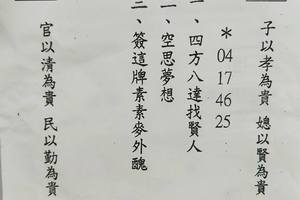 子以孝為貴 媳以賢為貴
＊04 17 46 25
一、四方八達找賢人
二、空思夢想
三、簽這牌素素麥外醜
官以清為貴 民以勤為貴